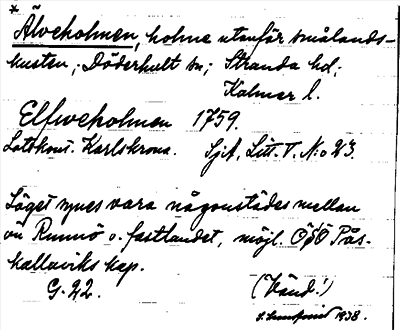 *
Älveholmen, holme utanför smålands-
kusten; Döderhult sn; Stranda hd;
Kalmar l.
Elfweholmen 1759.
Lotskont. Karlskrona. Sjk. Litt. T. N:o 23.
Läget synes vara någonstädes mellan
ön Runnö o. fastlandet, möjl. OSO Pås-
kallaviks kap.
G. 22. (Vänd!)
1938.